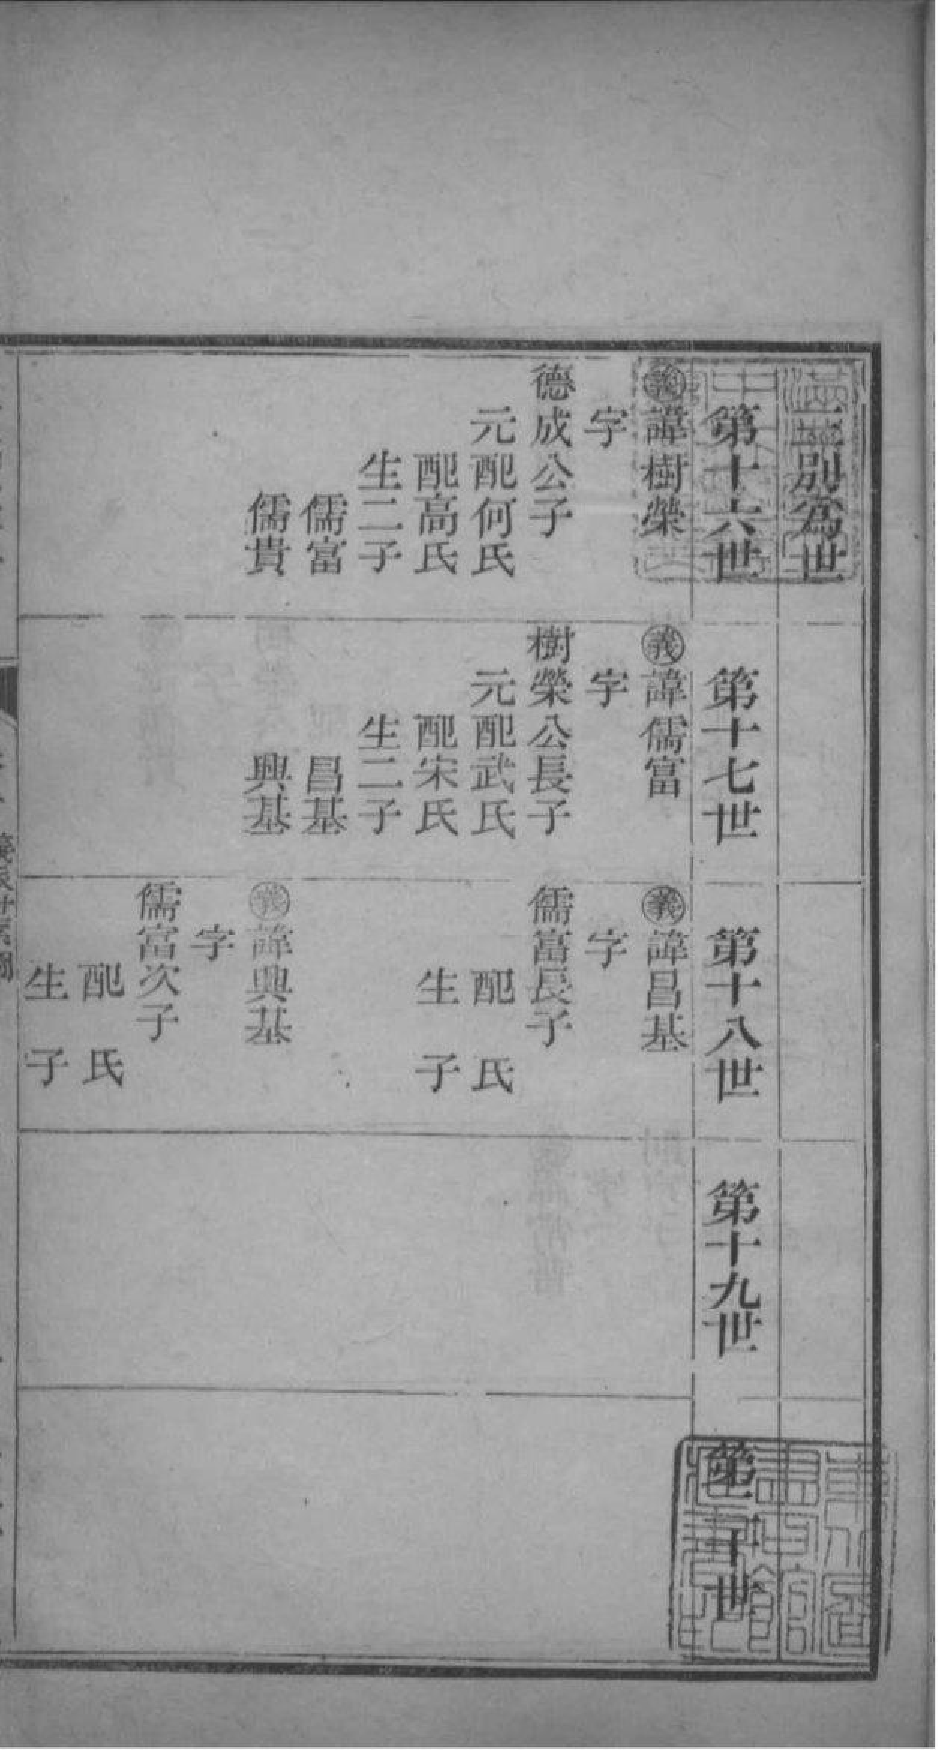 三別為世
第十六世
㊕諱樹榮
字
德成公子
元配何氏
配高氏
生二子
儒富
儒貴
第十七世
義諱儒富
字
樹榮公長子
元配武氏
配宋氏
生二子
昌基
興基
第十八世
義諱昌基
字
儒富長子
配　氏
生　子
義諱興基
字
儒富次子
配　氏
生　子
第十九世
第二十世